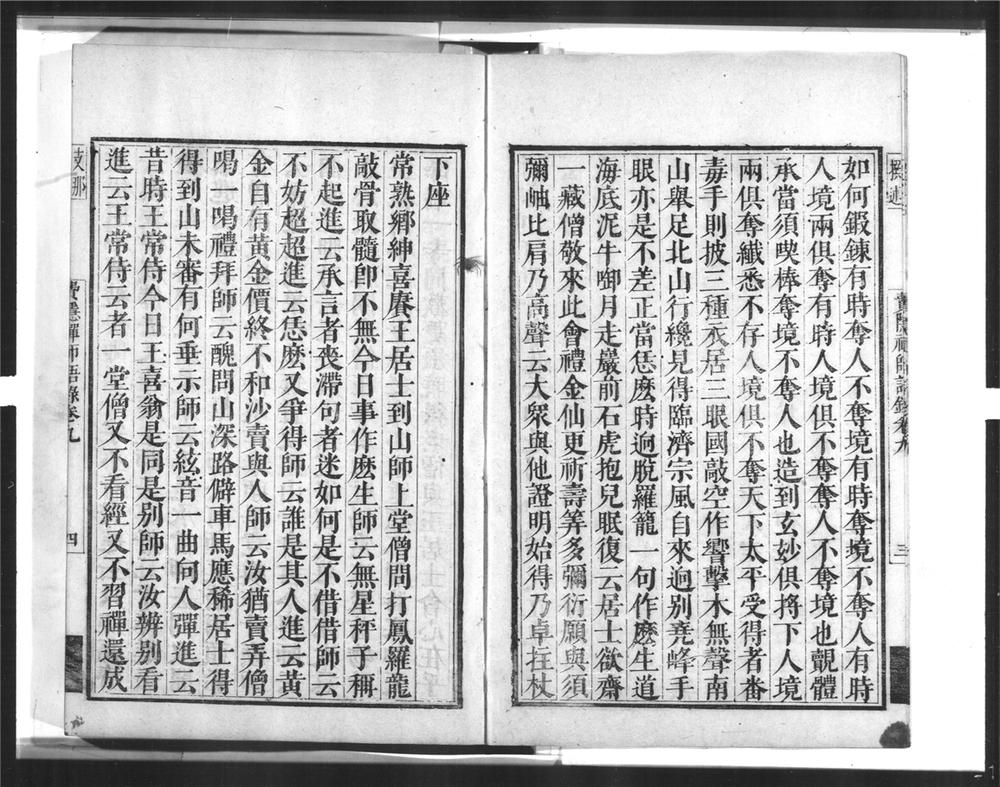 如何鍛鍊有時奪人不奪境有時奪境不奪人有時
人境兩俱奪有時人境俱不奪奪人不奪境也覿體
承當須喫棒奪境不奪人也造到玄妙俱捋下人境
兩俱奪纖悉不存人境俱不奪天下太平受得者番
毒手則披三種衣居三眼國敲空作響擊木無聲南
山舉足北山行纔見得臨濟宗風自來迥別堯峰手
眼亦是不差正當恁麽時迥脫羅籠一句作麽生道
海底泥牛啣月走巖前石虎抱兒眠復云居士欲齋
一藏僧敬來此會禮金仙更祈壽筭多彌衍願與須
彌岫比肩乃高聲云大眾與他證明始得乃卓拄杖
下座
常熟鄉紳喜賡王居士到山師上堂僧問打鳳羅龍
敲骨取髓卽不無今日事作麽生師云無星秤子稱
不起進云承言者喪滯句者迷如何是不借借師云
不妨超超進云恁麽又爭得師云誰是其人進云黃
金自有黃金價終不和沙賣與人師云汝猶賣弄僧
喝一喝禮拜師云醜問山深路僻車馬應稀居士得
得到山未審有何垂示師云絃音一曲向人彈進云
昔時王常侍今日王喜翁是同是別師云汝辨別看
進云王常侍云者一堂僧又不看經又不習禪還成
費隱禪師語錄卷九
四
費隱禪師語錄卷九
三